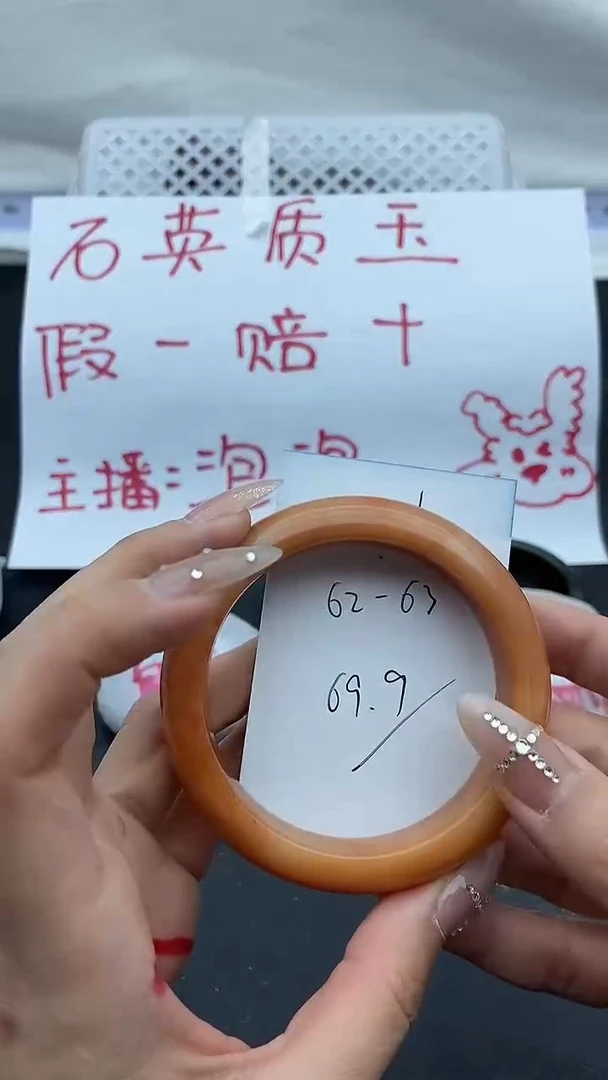 石英质玉
假一赔十
主播：泡泡
62-63
69.9